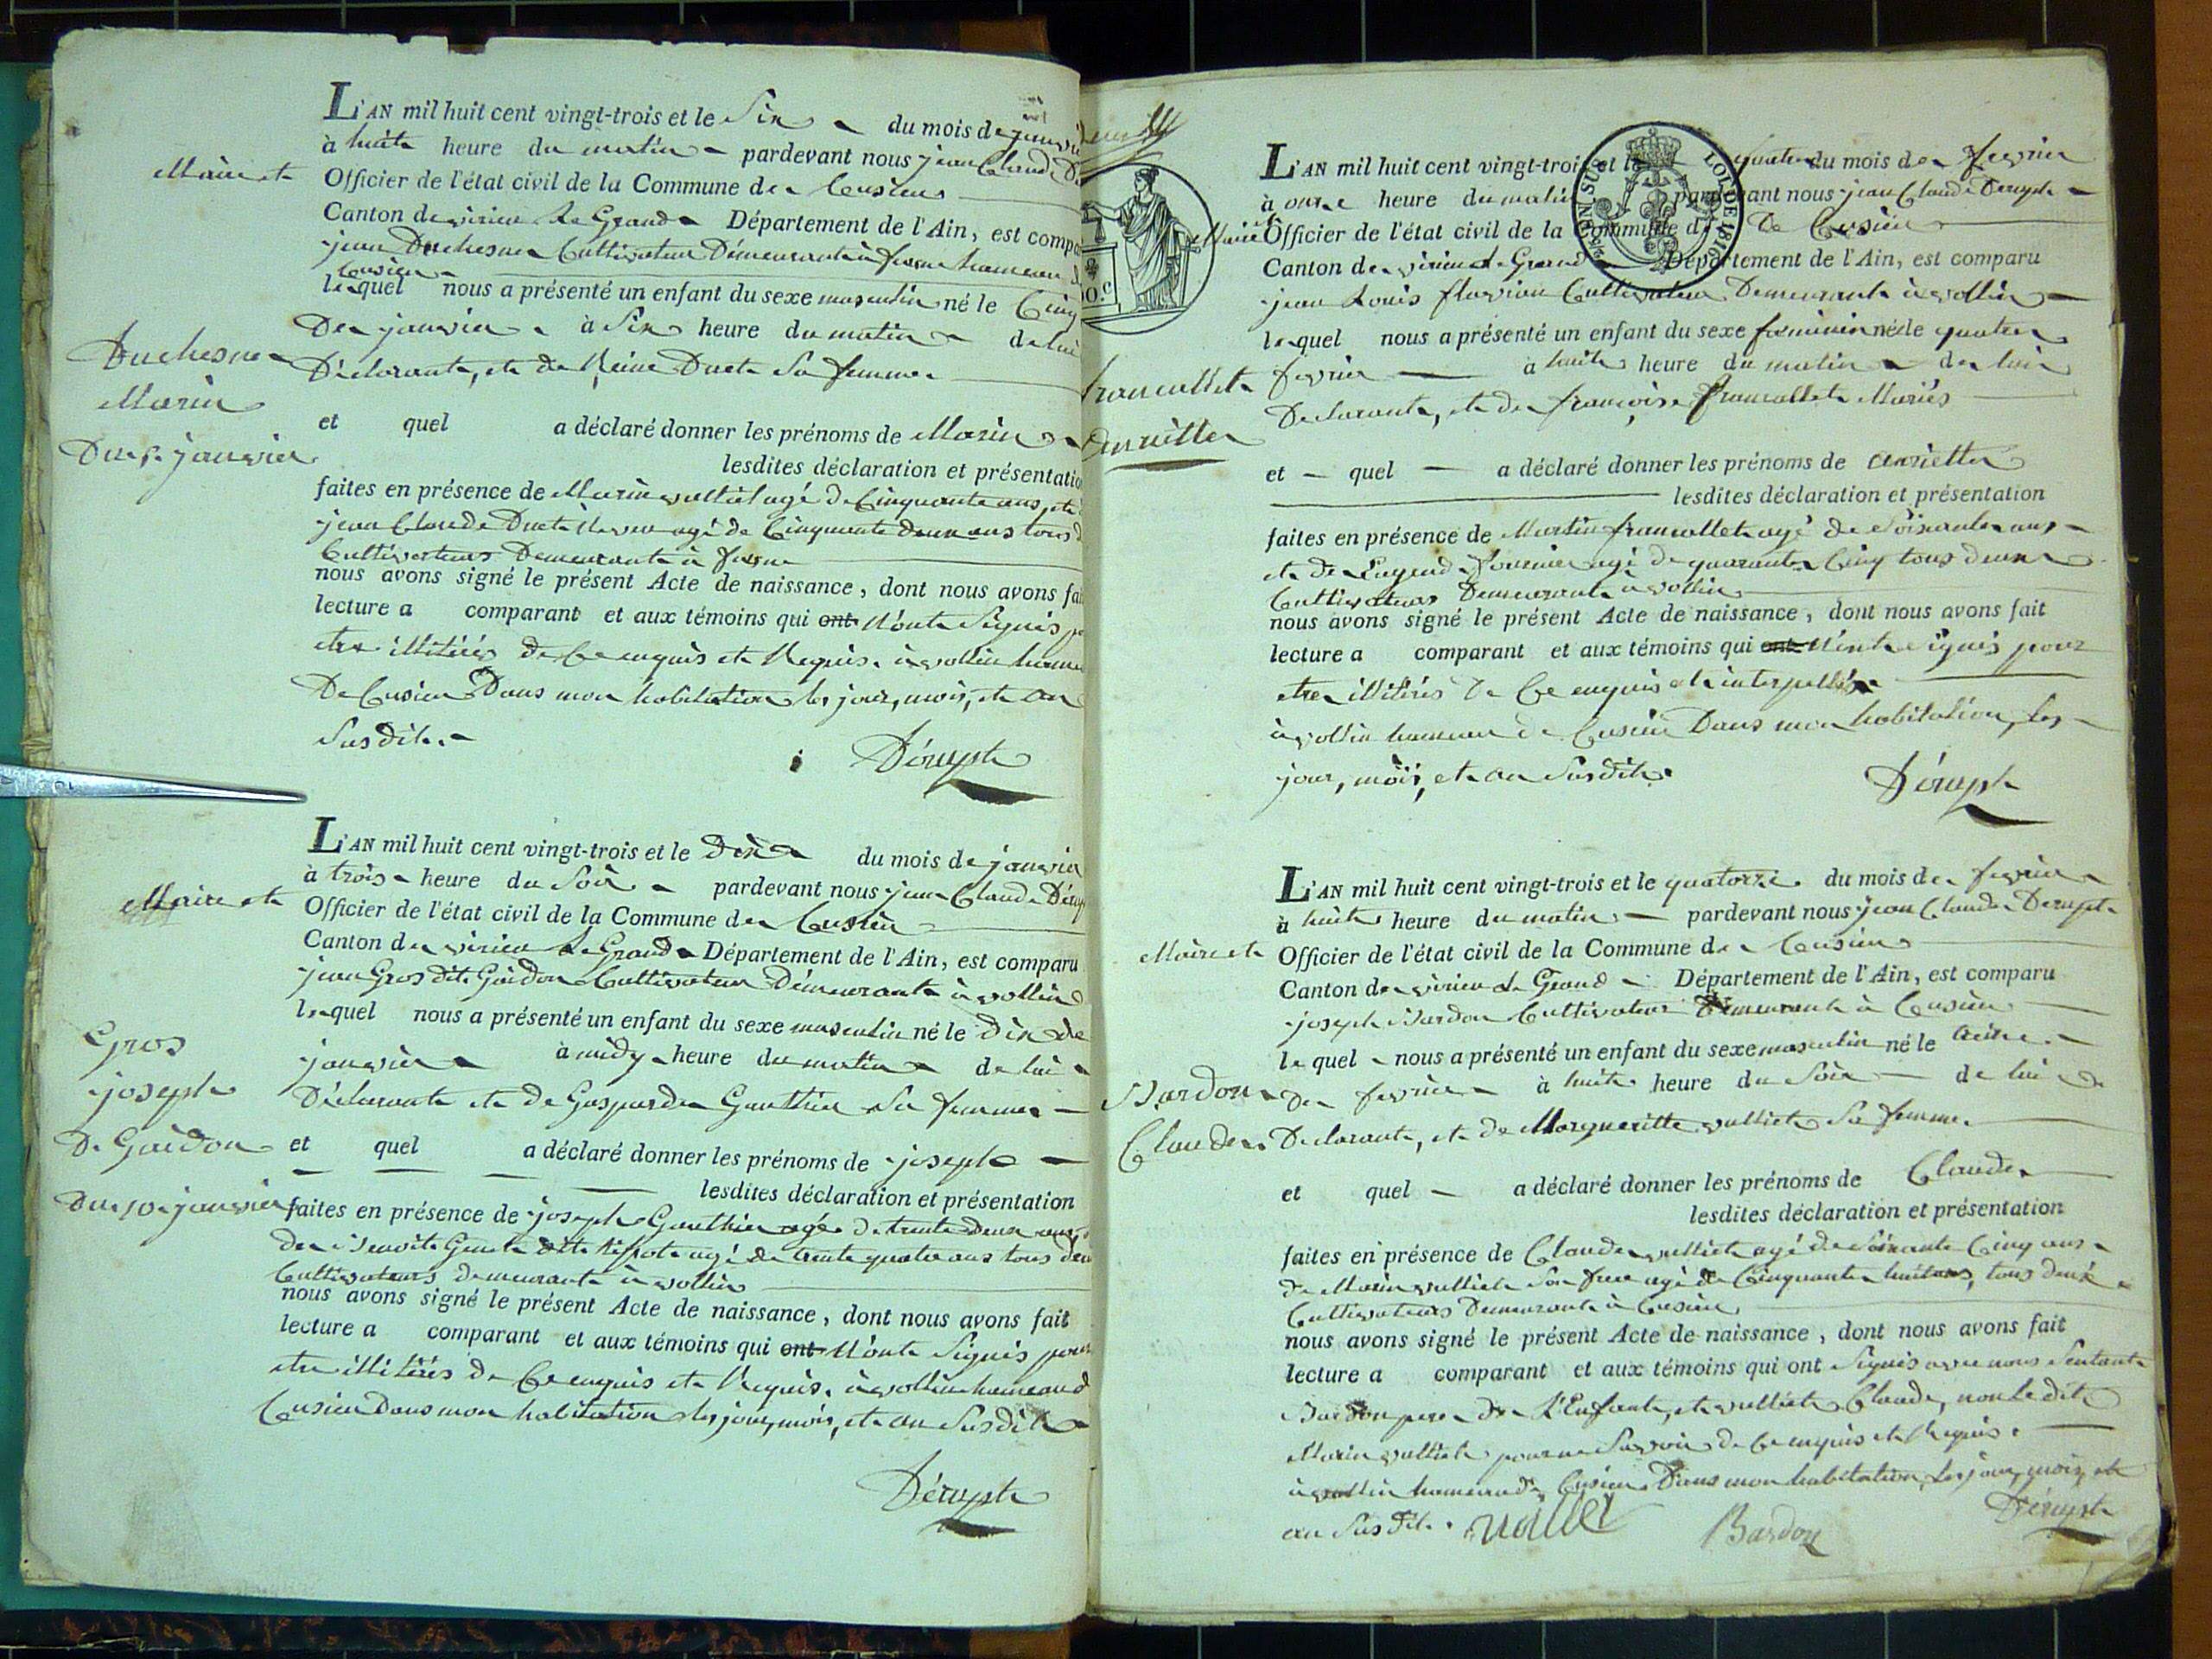 L'AN mil huit cent vingt-trois et le Six du mois de janvi
à huit heure du matin pardevant nous jean Claude De
Maire et
Officier de l'état civil de la Commune de Cusieu
Canton de virieu Le Grand Département de l'Ain, est compa
jean Duchesne Cultivateur Démeurant à hameau
Cusieu
lequel nous a présenté un enfant du sexe masculin né le Cinq
De janvier à Six heure du matin de lui
Duchesne
Déclarant, et de Reine Duct Sa femme
Marin
et quel a déclaré donner les prénoms de Marin
Du 5 janvier
lesdites déclaration et présentatio
faites en présence de Marin vulliet agé de Cinquante ans, et
jean Claude Duct agé de Cinquante Deux ans tous
Cultivateurs Demeurant à
nous avons signé le présent Acte de naissance, dont nous avons fai
lecture a comparant et aux témoins qui ont N'ont Signés p
etre illitérés de Ce enquis et Requis. à vollin hameau
De Cusieu Dans mon habitation les jour, mois, et an
Susdit.
Dérupt
L'AN mil huit cent vingt-trois et le Dix du mois de janvier
à trois heure du Soir pardevant nous jean Claude Dérup
Maire et
Officier de l'état civil de la Commune de Cusieu
Canton de virieu Le Grand Département de l'Ain, est comparu
jean Gros dit Guidon Cultivateur Démeurant à vollin
lequel nous a présenté un enfant du sexe masculin né le Dix de
Gros
janvier à midy heure du matin de lui
joseph
Déclarant et de Gasparde Gauthier Sa femme
D. Guidon
et quel a déclaré donner les prénoms de joseph
lesdites déclaration et présentation
Du 10 janvier
faites en présence de joseph Gauthier agé de trente Deux ans
de Benoit dit agé de trente quatre ans tous deux
Cultivateurs demeurant à vollin
nous avons signé le présent Acte de naissance, dont nous avons fait
lecture a comparant et aux témoins qui ont N'ont Signés pour
etre illitérés de Ce enquis et Requis. à vollin hameau d
Cusieu Dans mon habitation les jour, mois, et an Susdit
Dérupt
L'AN mil huit cent vingt-trois et le quatre du mois de fevrier
LOI DE 1816
à onze heure du matin pardevant nous jean Claude Derupt
Maire et
Officier de l'état civil de la Commune d De Cusieu
Canton de virieu Le Grand Département de l'Ain, est comparu
jean Louis Cultivateur Demeurant à vollin
lequel nous a présenté un enfant du sexe feminin né le quatre
francallet
fevrier à huit heure du matin de lui
Declarant, et de françoise francallet Mariés
et quel a déclaré donner les prénoms de
lesdites déclaration et présentation
faites en présence de Martin francallet agé de Soixante ans
et de fournier agé de quarante Cinq tous deux
Cultivateurs Demeurant à vollin
nous avons signé le présent Acte de naissance, dont nous avons fait
lecture a comparant et aux témoins qui ont N'ont Signés pour
etre illitérés de Ce enquis et interpellés
à vollin hameau de Cusieu Dans mon habitation, les
jour, mois, et an Susdit.
Dérupt
L'AN mil huit cent vingt-trois et le quatorze du mois de fevrier
à huit heure du matin pardevant nous jean Claude Derupt
Maire et
Officier de l'état civil de la Commune de Cusieu
Canton de virieu Le Grand Département de l'Ain, est comparu
joseph Bardon Cultivateur Demeurant à Cusieu
lequel nous a présenté un enfant du sexe masculin né le treize
Bardon
de fevrier à huit heure du Soir de lui
Claude
Declarant, et de Margueritte vulliet Sa femme
et quel a déclaré donner les prénoms de Claude
lesdites déclaration et présentation
faites en présence de Claude vulliet agé de Soixante Cinq ans
de Marin vulliet Son frere agé de Cinquante huit ans, tous deux
Cultivateurs Demeurant à Cusieu
nous avons signé le présent Acte de naissance, dont nous avons fait
lecture a comparant et aux témoins qui ont Signés avec nous
Bardon pere de L'Enfant, et vulliet Claude, non Le dit
Marin vulliet pour ne Savoir de Ce enquis et Requis.
à vollin hameau de Cusieu Dans mon habitation, les jour, mois, et
an Susdit.
Bardon
Dérupt